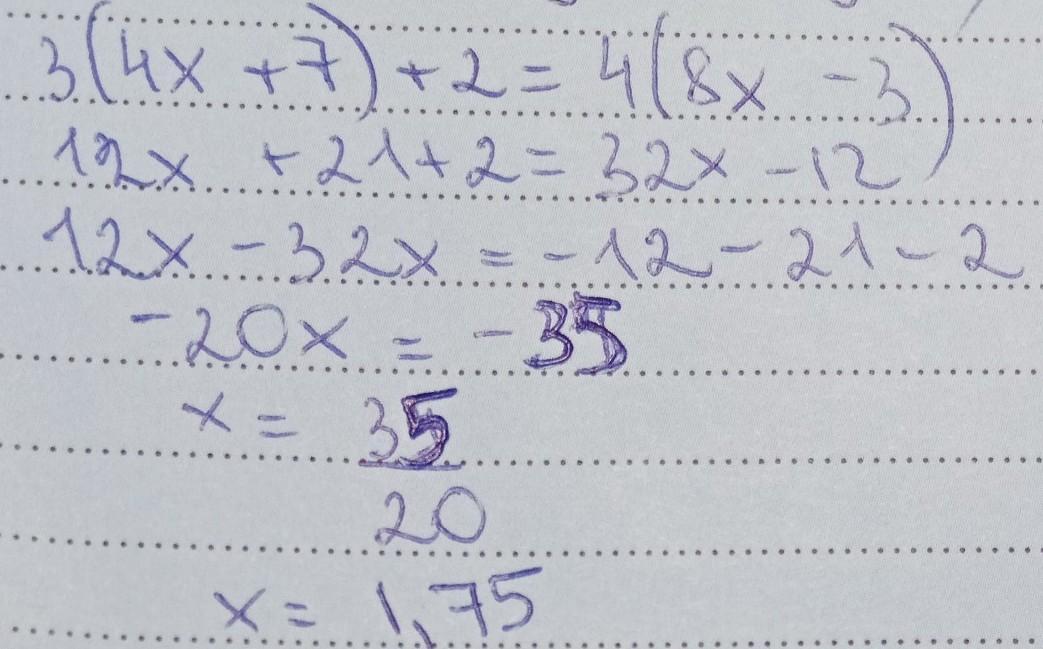 3(4x +7)+2=4(8x -3)
12x +21+2=32x-12
12x-32x=-12-21-2
-20x=-35
x=35
20
x=1,75